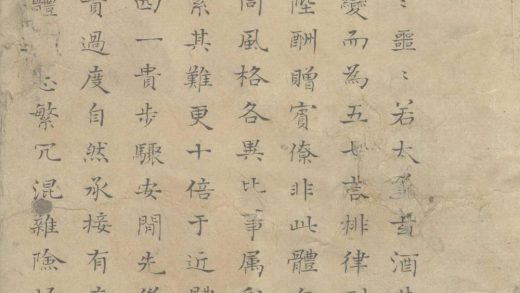 噩噩若太羹玄酒
變而為五七言排律
陛酬贈賓僚非此體
同風格各異比事属
系其難更十倍于近體
一貴步驟安閒先後
貴過度自然承接有
體忌繁冗混雜